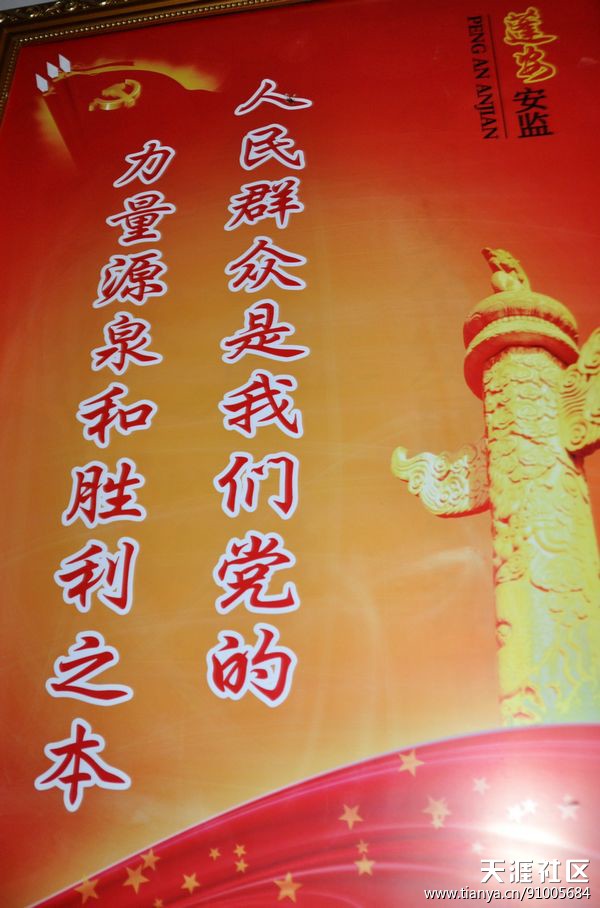 蓬安
安监
PENG AN ANJIAN
人民群众是我们党的
力量源泉和胜利之本
天涯社区
www.tianya.cn/91005684